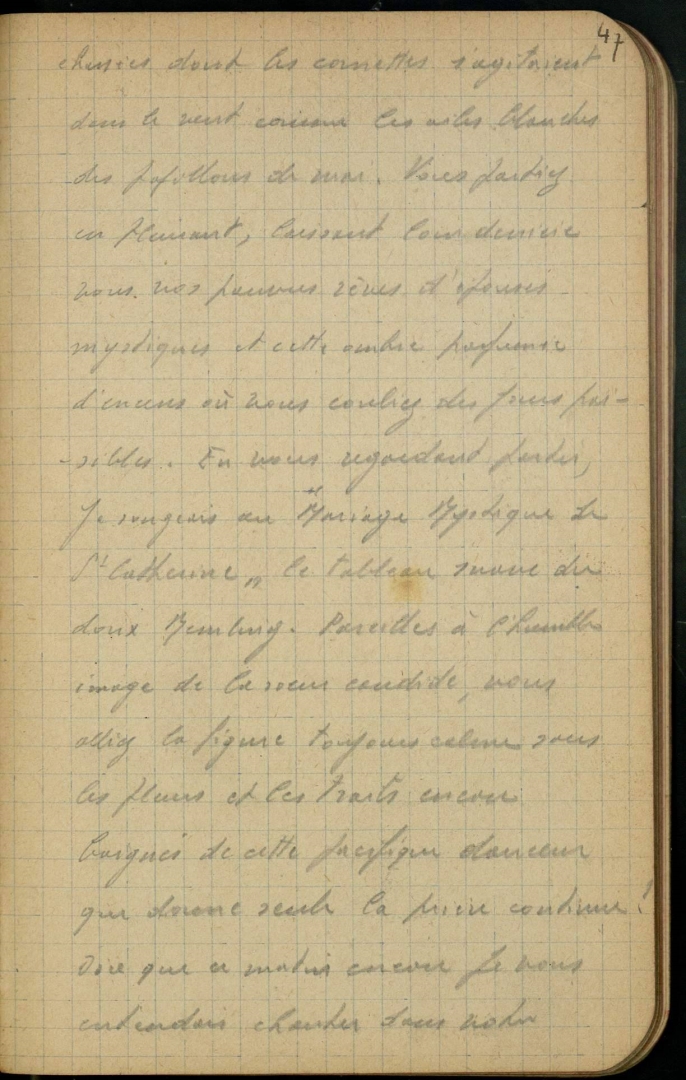 47
chassées dont les cornettes s'agitaient
dans le vent comme les ailes blanches
des papillons de mai. Vous partiez
en pleurant, laissant loin derrière
vous, vos pauvres rêves d'épouses
mystiques et cette ombre parfumée
d'encens où vous couliez des jours pai-
-sibles. En vous regardant partir,
Je songeais au "Mariage Mystique de
Ste Catherine„ le tableau suave du
doux Memling. Pareilles à l'humble
image de la soeur candide, vous
alliez la figure toujours calme sous
les pleurs et les traits encore
baignés de cette pacifique douceur
que donne seule la prière continue!
Dire que ce matin encore Je vous
entendais chanter dans votre